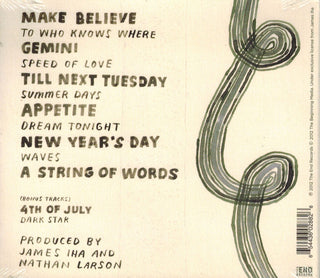 MAKE BELIEVE
TO WHO KNOWS WHERE
GEMINI
SPEED OF LOVE
TILL NEXT TUESDAY
SUMMER DAYS
APPETITE
DREAM TONIGHT
NEW YEAR'S DAY
WAVES
A STRING OF WORDS
(BONUS TRACKS)
4TH OF JULY
DARK STAR
PRODUCED BY
JAMES IHA AND
NATHAN LARSON
℗ 2012 The End Records © 2012 The Beginning Media. Under exclusive license from James Iha
THE END
RECORDS